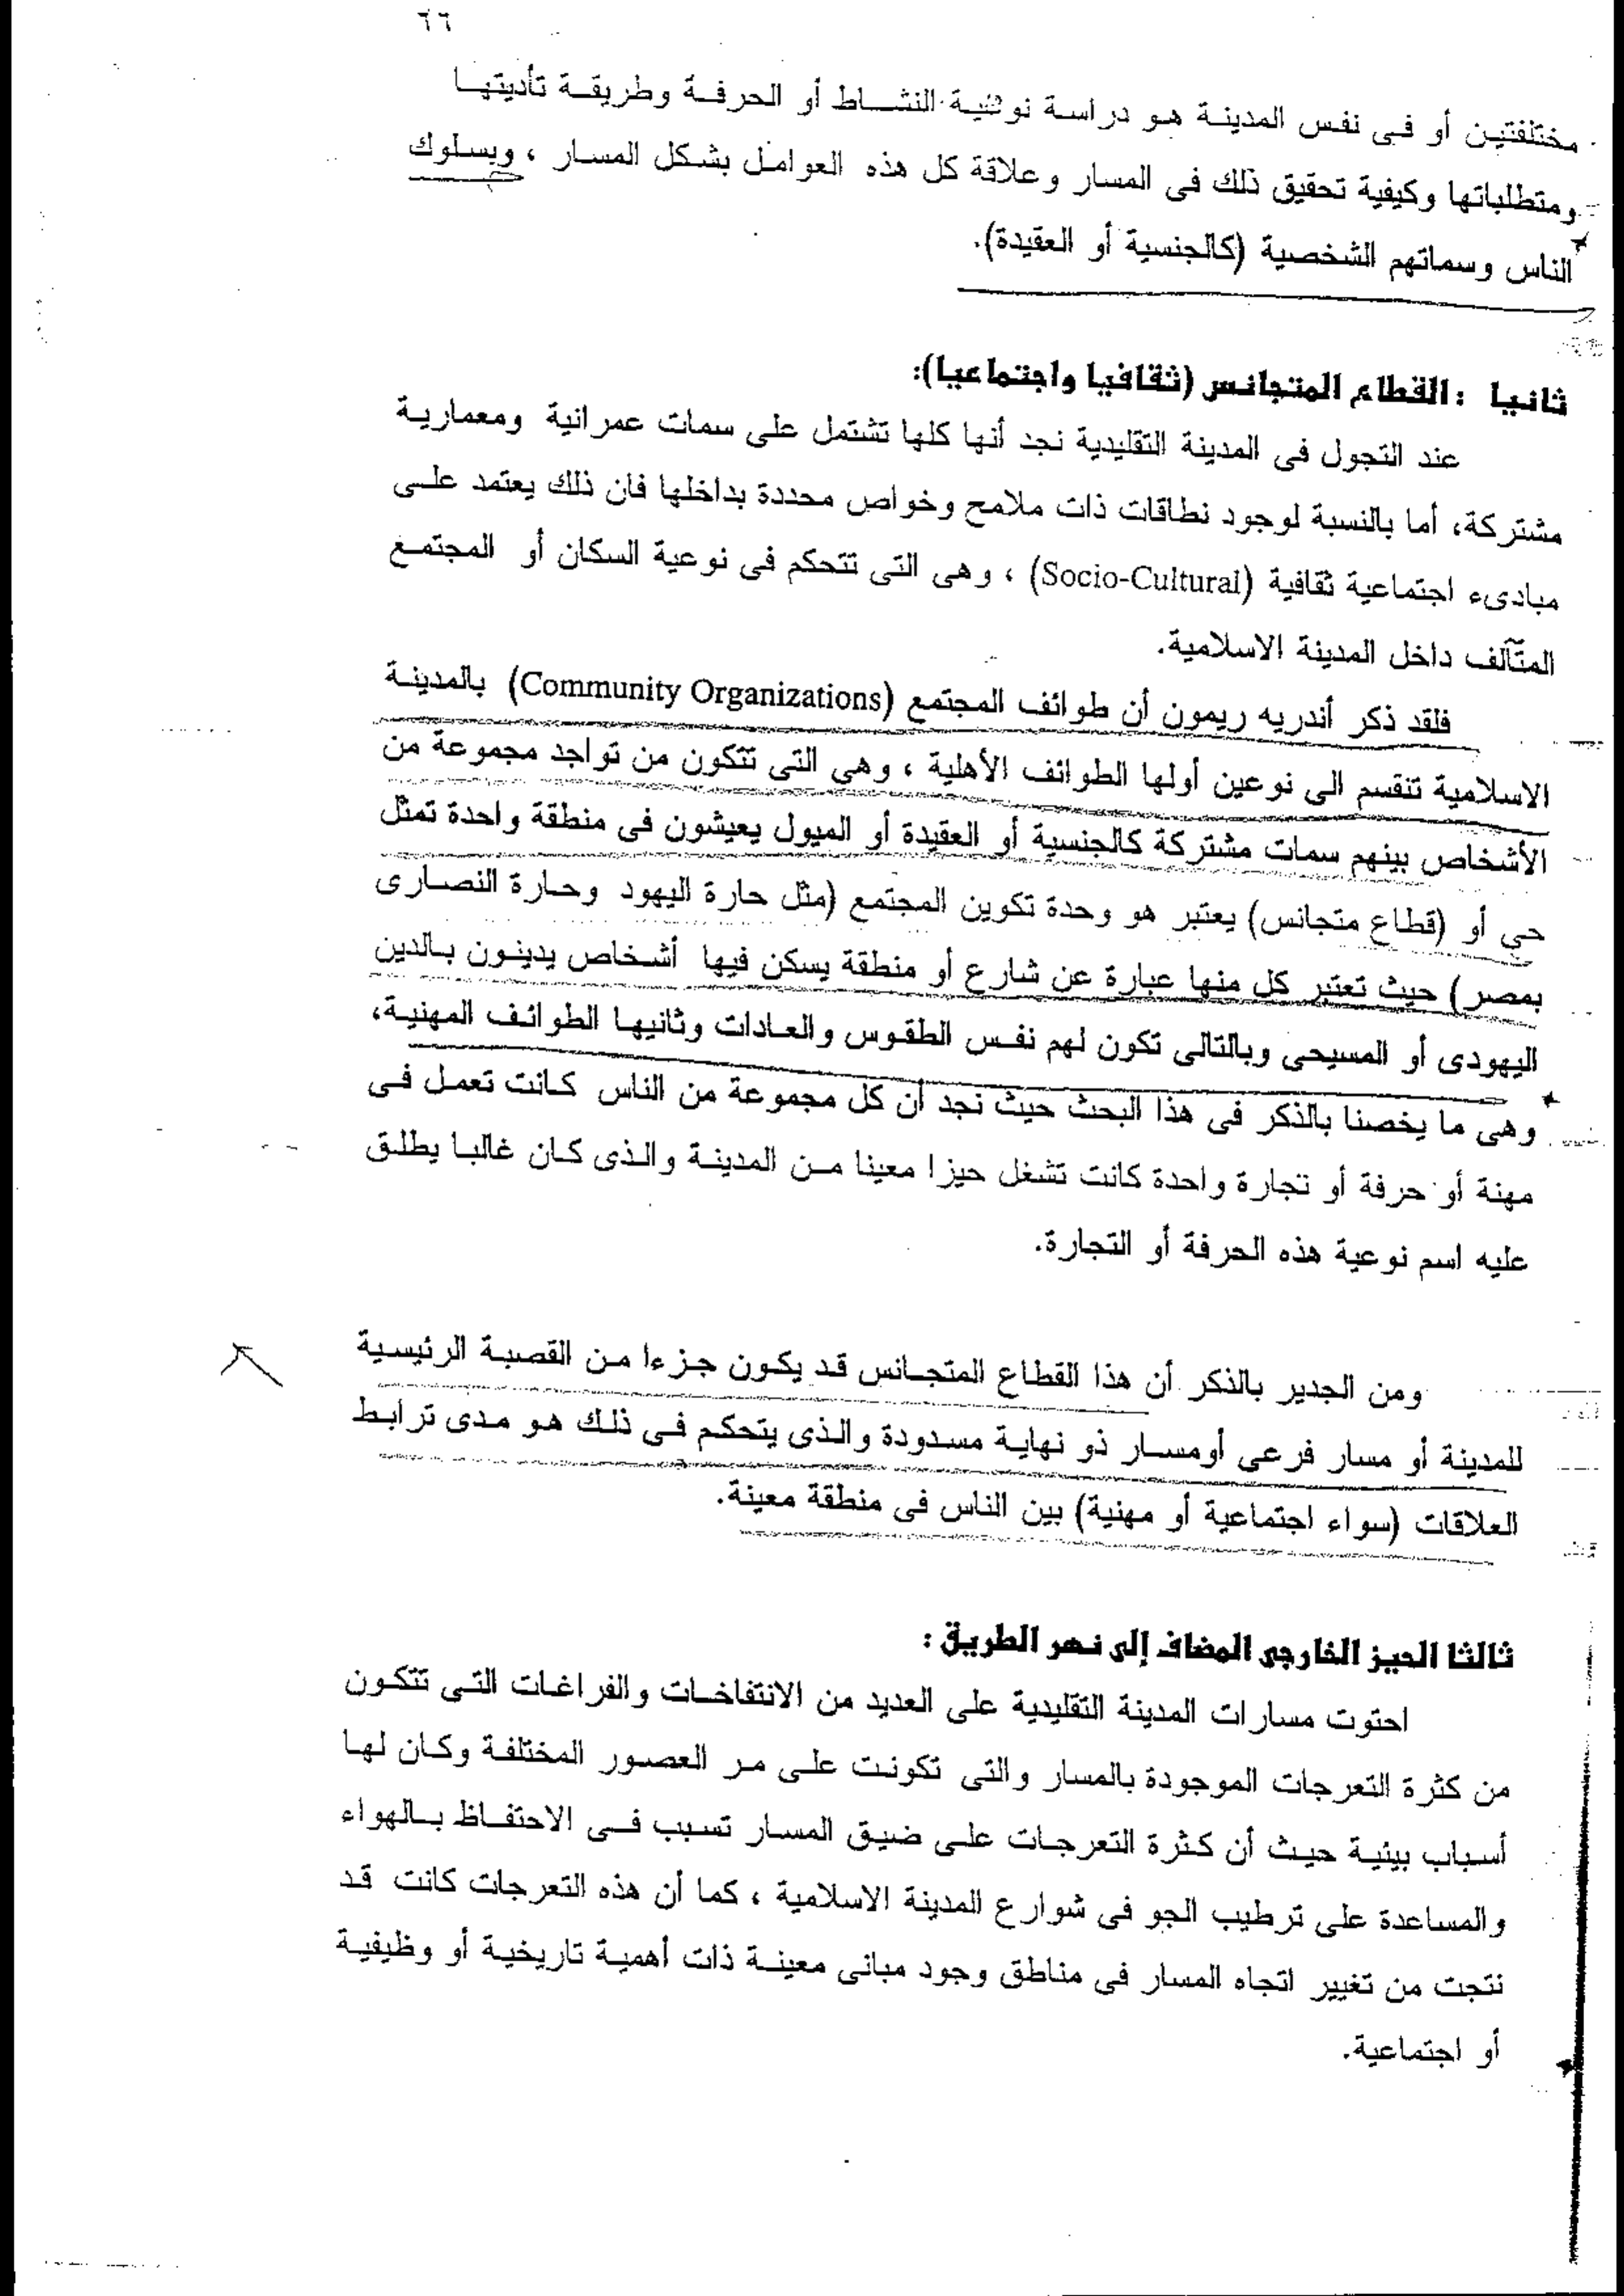 ٦٦
مختلفتين أو فى نفس المدينة هو دراسة نوعية النشاط أو الحرفة وطريقة تأديتها
ومتطلباتها وكيفية تحقيق ذلك فى المسار وعلاقة كل هذه العوامل بشكل المسار ، وبسلوك
الناس وسماتهم الشخصية (كالجنسية أو العقيدة).
ثانيا : القطاع المتجانس (ثقافيا واجتماعيا):
عند التجول فى المدينة التقليدية نجد أنها كلها تشتمل على سمات عمرانية ومعمارية
مشتركة، أما بالنسبة لوجود نطاقات ذات ملامح وخواص محددة بداخلها فان ذلك يعتمد على
مبادىء اجتماعية ثقافية (Socio-Cultural) ، وهى التى تتحكم فى نوعية السكان أو المجتمع
المتآلف داخل المدينة الاسلامية.
فلقد ذكر أندريه ريمون أن طوائف المجتمع (Community Organizations) بالمدينة
الاسلامية تنقسم الى نوعين أولها الطوائف الأهلية ، وهى التى تتكون من تواجد مجموعة من
الأشخاص بينهم سمات مشتركة كالجنسية أو العقيدة أو الميول يعيشون فى منطقة واحدة تمثل
حي أو (قطاع متجانس) يعتبر هو وحدة تكوين المجتمع (مثل حارة اليهود وحارة النصارى
بمصر) حيث تعتبر كل منها عبارة عن شارع أو منطقة يسكن فيها أشخاص يدينون بالدين
اليهودى أو المسيحى وبالتالى تكون لهم نفس الطقوس والعادات وثانيها الطوائف المهنية،
وهى ما يخصنا بالذكر فى هذا البحث حيث نجد أن كل مجموعة من الناس كانت تعمل فى
مهنة أو حرفة أو تجارة واحدة كانت تشغل حيزا معينا من المدينة والذى كان غالبا يطلق
عليه اسم نوعية هذه الحرفة أو التجارة.
ومن الجدير بالذكر أن هذا القطاع المتجانس قد يكون جزءا من القصبة الرئيسية
للمدينة أو مسار فرعى أومسار ذو نهاية مسدودة والذى يتحكم فى ذلك هو مدى ترابط
العلاقات (سواء اجتماعية أو مهنية) بين الناس فى منطقة معينة.
ثالثا الحيز الخارجى المضاف إلى نهر الطريق :
احتوت مسارات المدينة التقليدية على العديد من الانتفاخات والفراغات التى تتكون
من كثرة التعرجات الموجودة بالمسار والتى تكونت على مر العصور المختلفة وكان لها
أسباب بيئية حيث أن كثرة التعرجات على ضيق المسار تسبب فى الاحتفاظ بالهواء
والمساعدة على ترطيب الجو فى شوارع المدينة الاسلامية ، كما أن هذه التعرجات كانت قد
نتجت من تغيير اتجاه المسار فى مناطق وجود مبانى معينة ذات أهمية تاريخية أو وظيفية
أو اجتماعية.